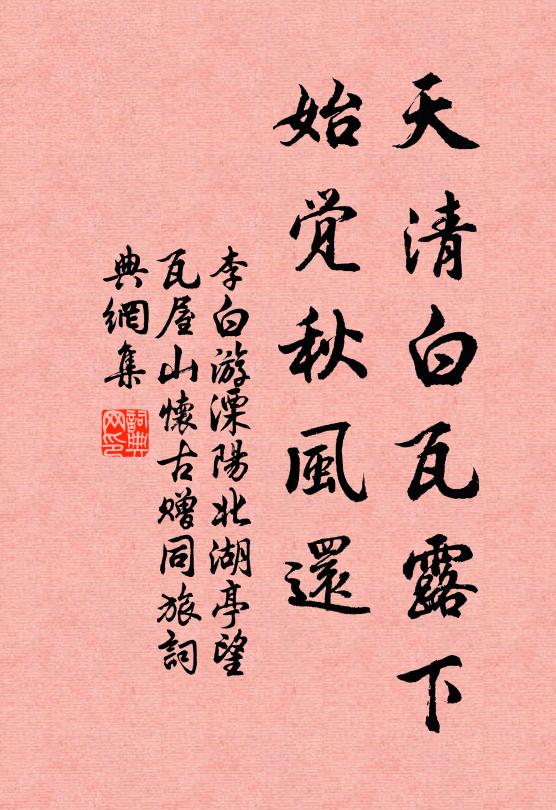 天清白瓦露下
始觉秋風還
李白游溧陽北湖亭望
瓦屋山懷古赠同旅詞
典網集
詞典网印